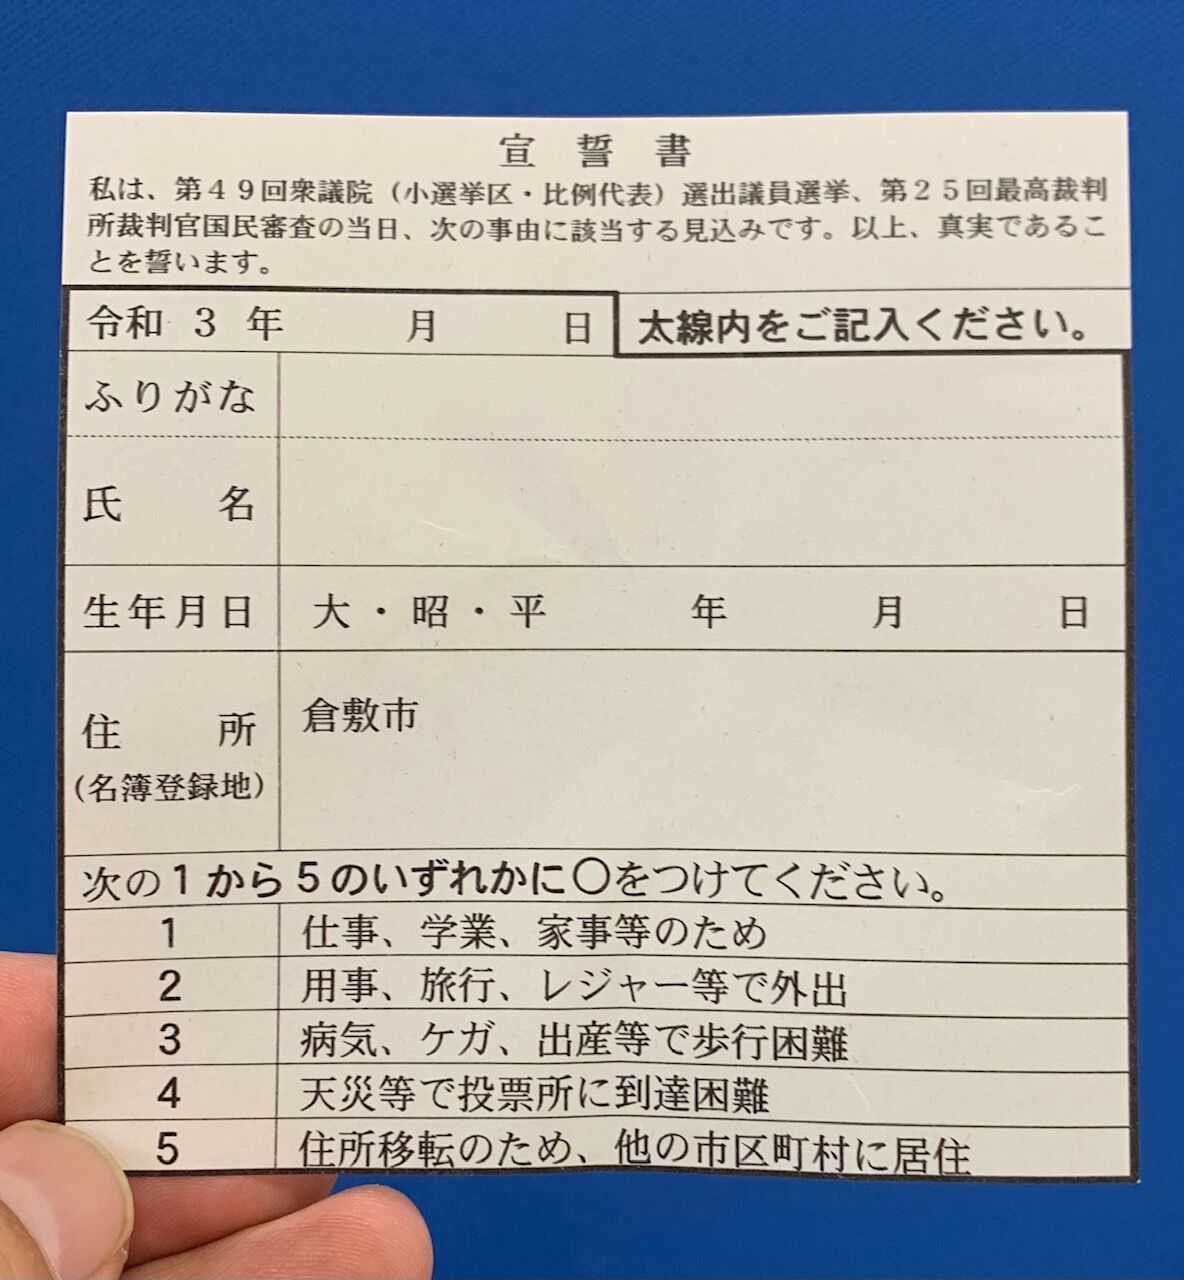 宣誓書
私は、第49回衆議院（小選挙区・比例代表）選出議員選挙、第25回最高裁判
所裁判官国民審査の当日、次の事由に該当する見込みです。以上、真実であるこ
とを誓います。
令和 3 年 月 日 太線内をご記入ください。
ふりがな
氏 名
生年月日 大・昭・平 年 月 日
住 所 倉敷市
(名簿登録地)
次の1から5のいずれかに〇をつけてください。
1 仕事、学業、家事等のため
2 用事、旅行、レジャー等で外出
3 病気、ケガ、出産等で歩行困難
4 天災等で投票所に到達困難
5 住所移転のため、他の市区町村に居住